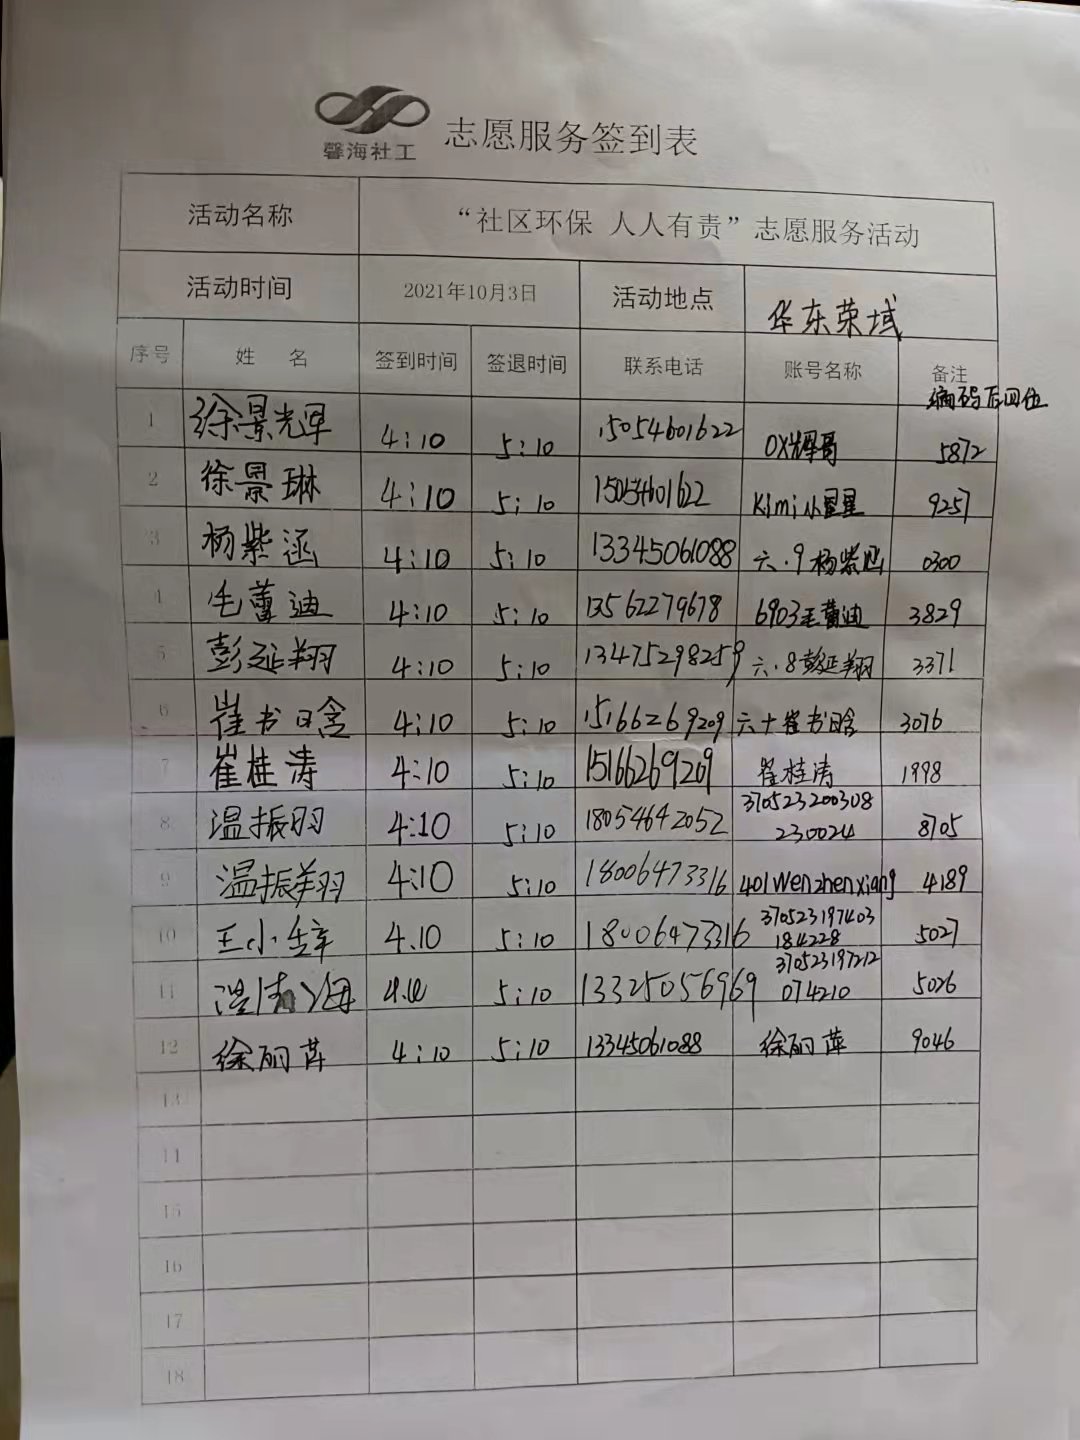 馨海社工
志愿服务签到表
活动名称 “社区环保 人人有责”志愿服务活动
活动时间 2021年10月3日 活动地点 华东荣域
序号 姓 名 签到时间 签退时间 联系电话 账号名称 备注
编码后四位
1 徐景光 4:10 5:10 15054601622 OX辉哥 5872
2 徐景琳 4:10 5:10 15054601622 Kimi小星星 9257
3 杨紫涵 4:10 5:10 13345061088 六.9杨紫 0300
4 毛蕾迪 4:10 5:10 13562279678 6903毛蕾迪 3829
5 彭延翔 4:10 5:10 13475298259 六.8彭延翔 3371
6 崔书晗 4:10 5:10 15166269209 六十崔书晗 3076
7 崔桂涛 4:10 5:10 15166269209 崔桂涛 1998
8 温振羽 4:10 5:10 18054642052 370523200308
230024 8705
9 温振翔 4:10 5:10 18006473316 401Wenzhenxiang 4189
10 王小 4.10 5:10 18006473316 370523197403
184228 5027
11 海 5:10 13325056969 370523197212
074210 5026
12 徐丽萍 4:10 5:10 13345061088 徐丽萍 9046
13
14
15
16
17
18